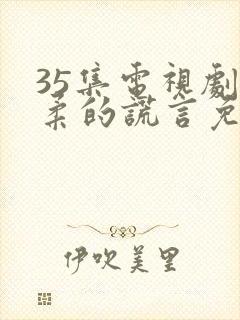 35集電視劇
柔的謊言免
伊吹美里